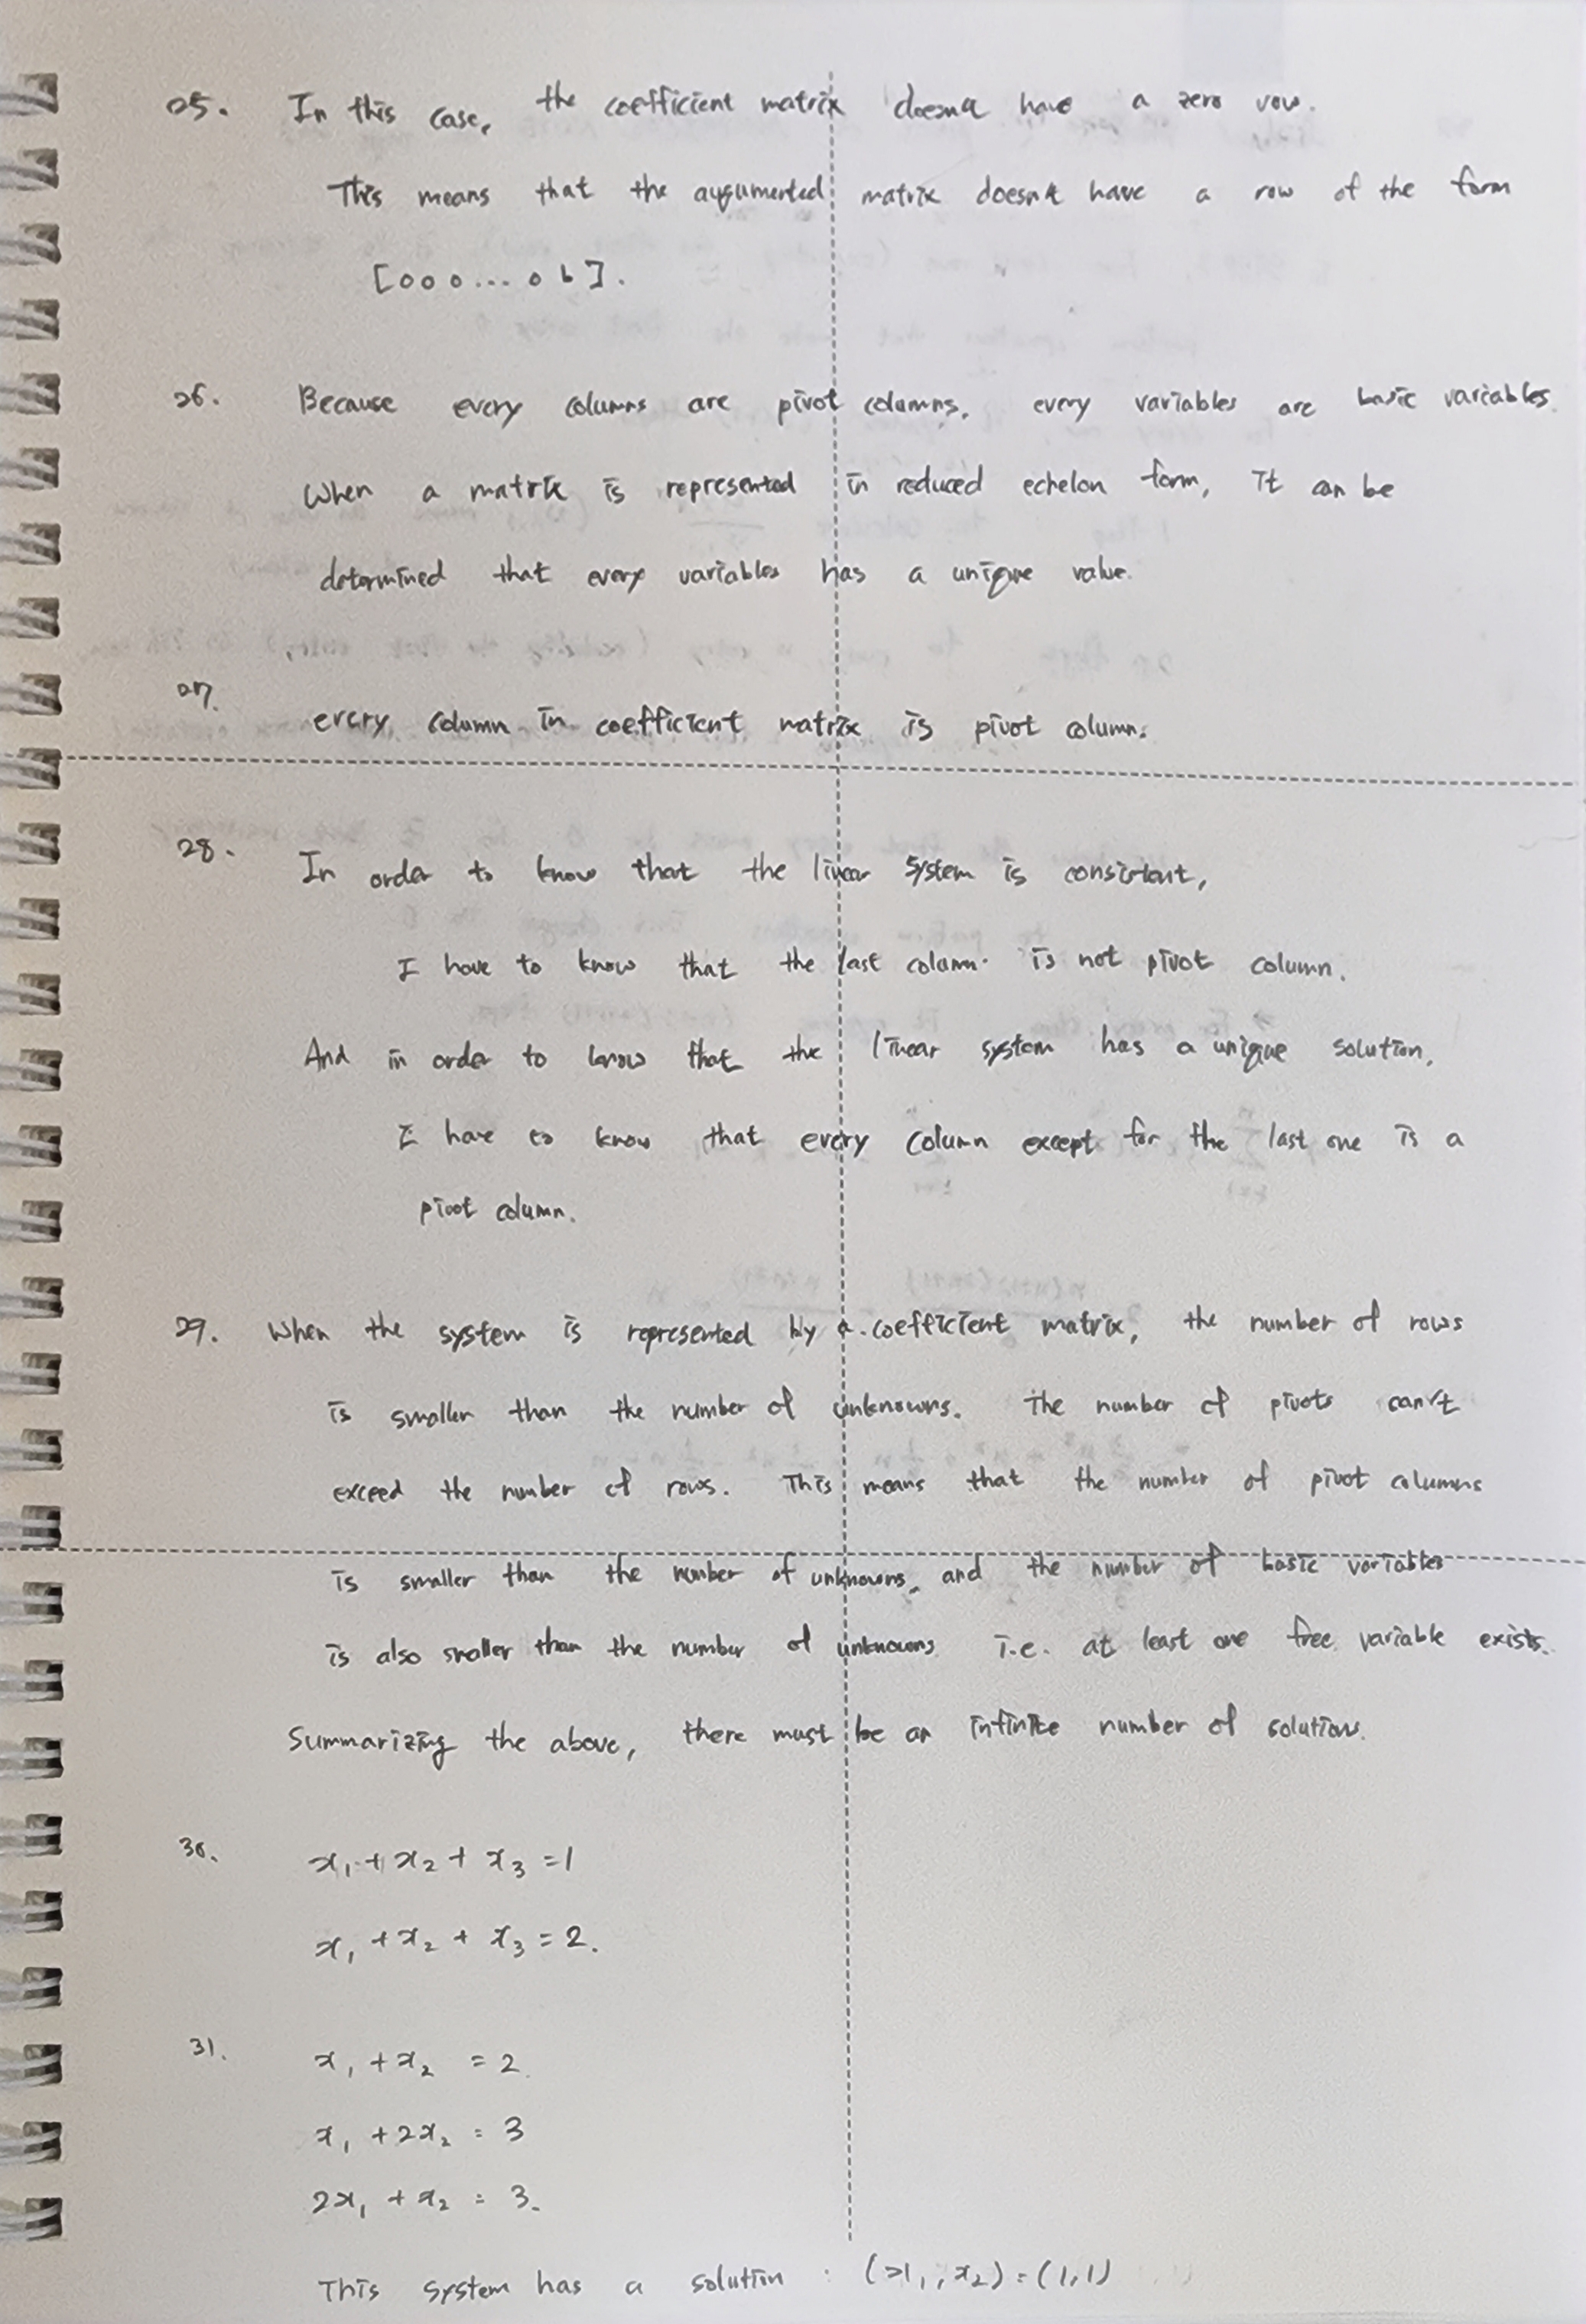 25. In this case, the coefficient matrix doesn't have a zero row.
This means that the augumented matrix doesn't have a row of the form
[0 0 0 ... 0 b].
26. Because every columns are pivot columns, every variables are basic variables.
When a matrix is represented in reduced echelon form, It can be
determined that every variables has a unique value.
27. every column in coefficient matrix is pivot column.
28. In order to know that the linear system is consistent,
I have to know that the last column is not pivot column.
And in order to know that the linear system has a unique solution,
I have to know that every column except for the last one is a
pivot column.
29. When the system is represented by a coefficient matrix, the number of rows
is smaller than the number of unknowns. The number of pivots can't
exceed the number of rows. This means that the number of pivot columns
is smaller than the number of unknowns, and the number of basic variables
is also smaller than the number of unknowns i.e. at least one free variable exists.
Summarizing the above, there must be an infinite number of solutions.
30. x₁ + x₂ + x₃ = 1
x₁ + x₂ + x₃ = 2.
31. x₁ + x₂ = 2
x₁ + 2x₂ = 3
2x₁ + x₂ = 3.
This system has a solution : (x₁, x₂) = (1,1)